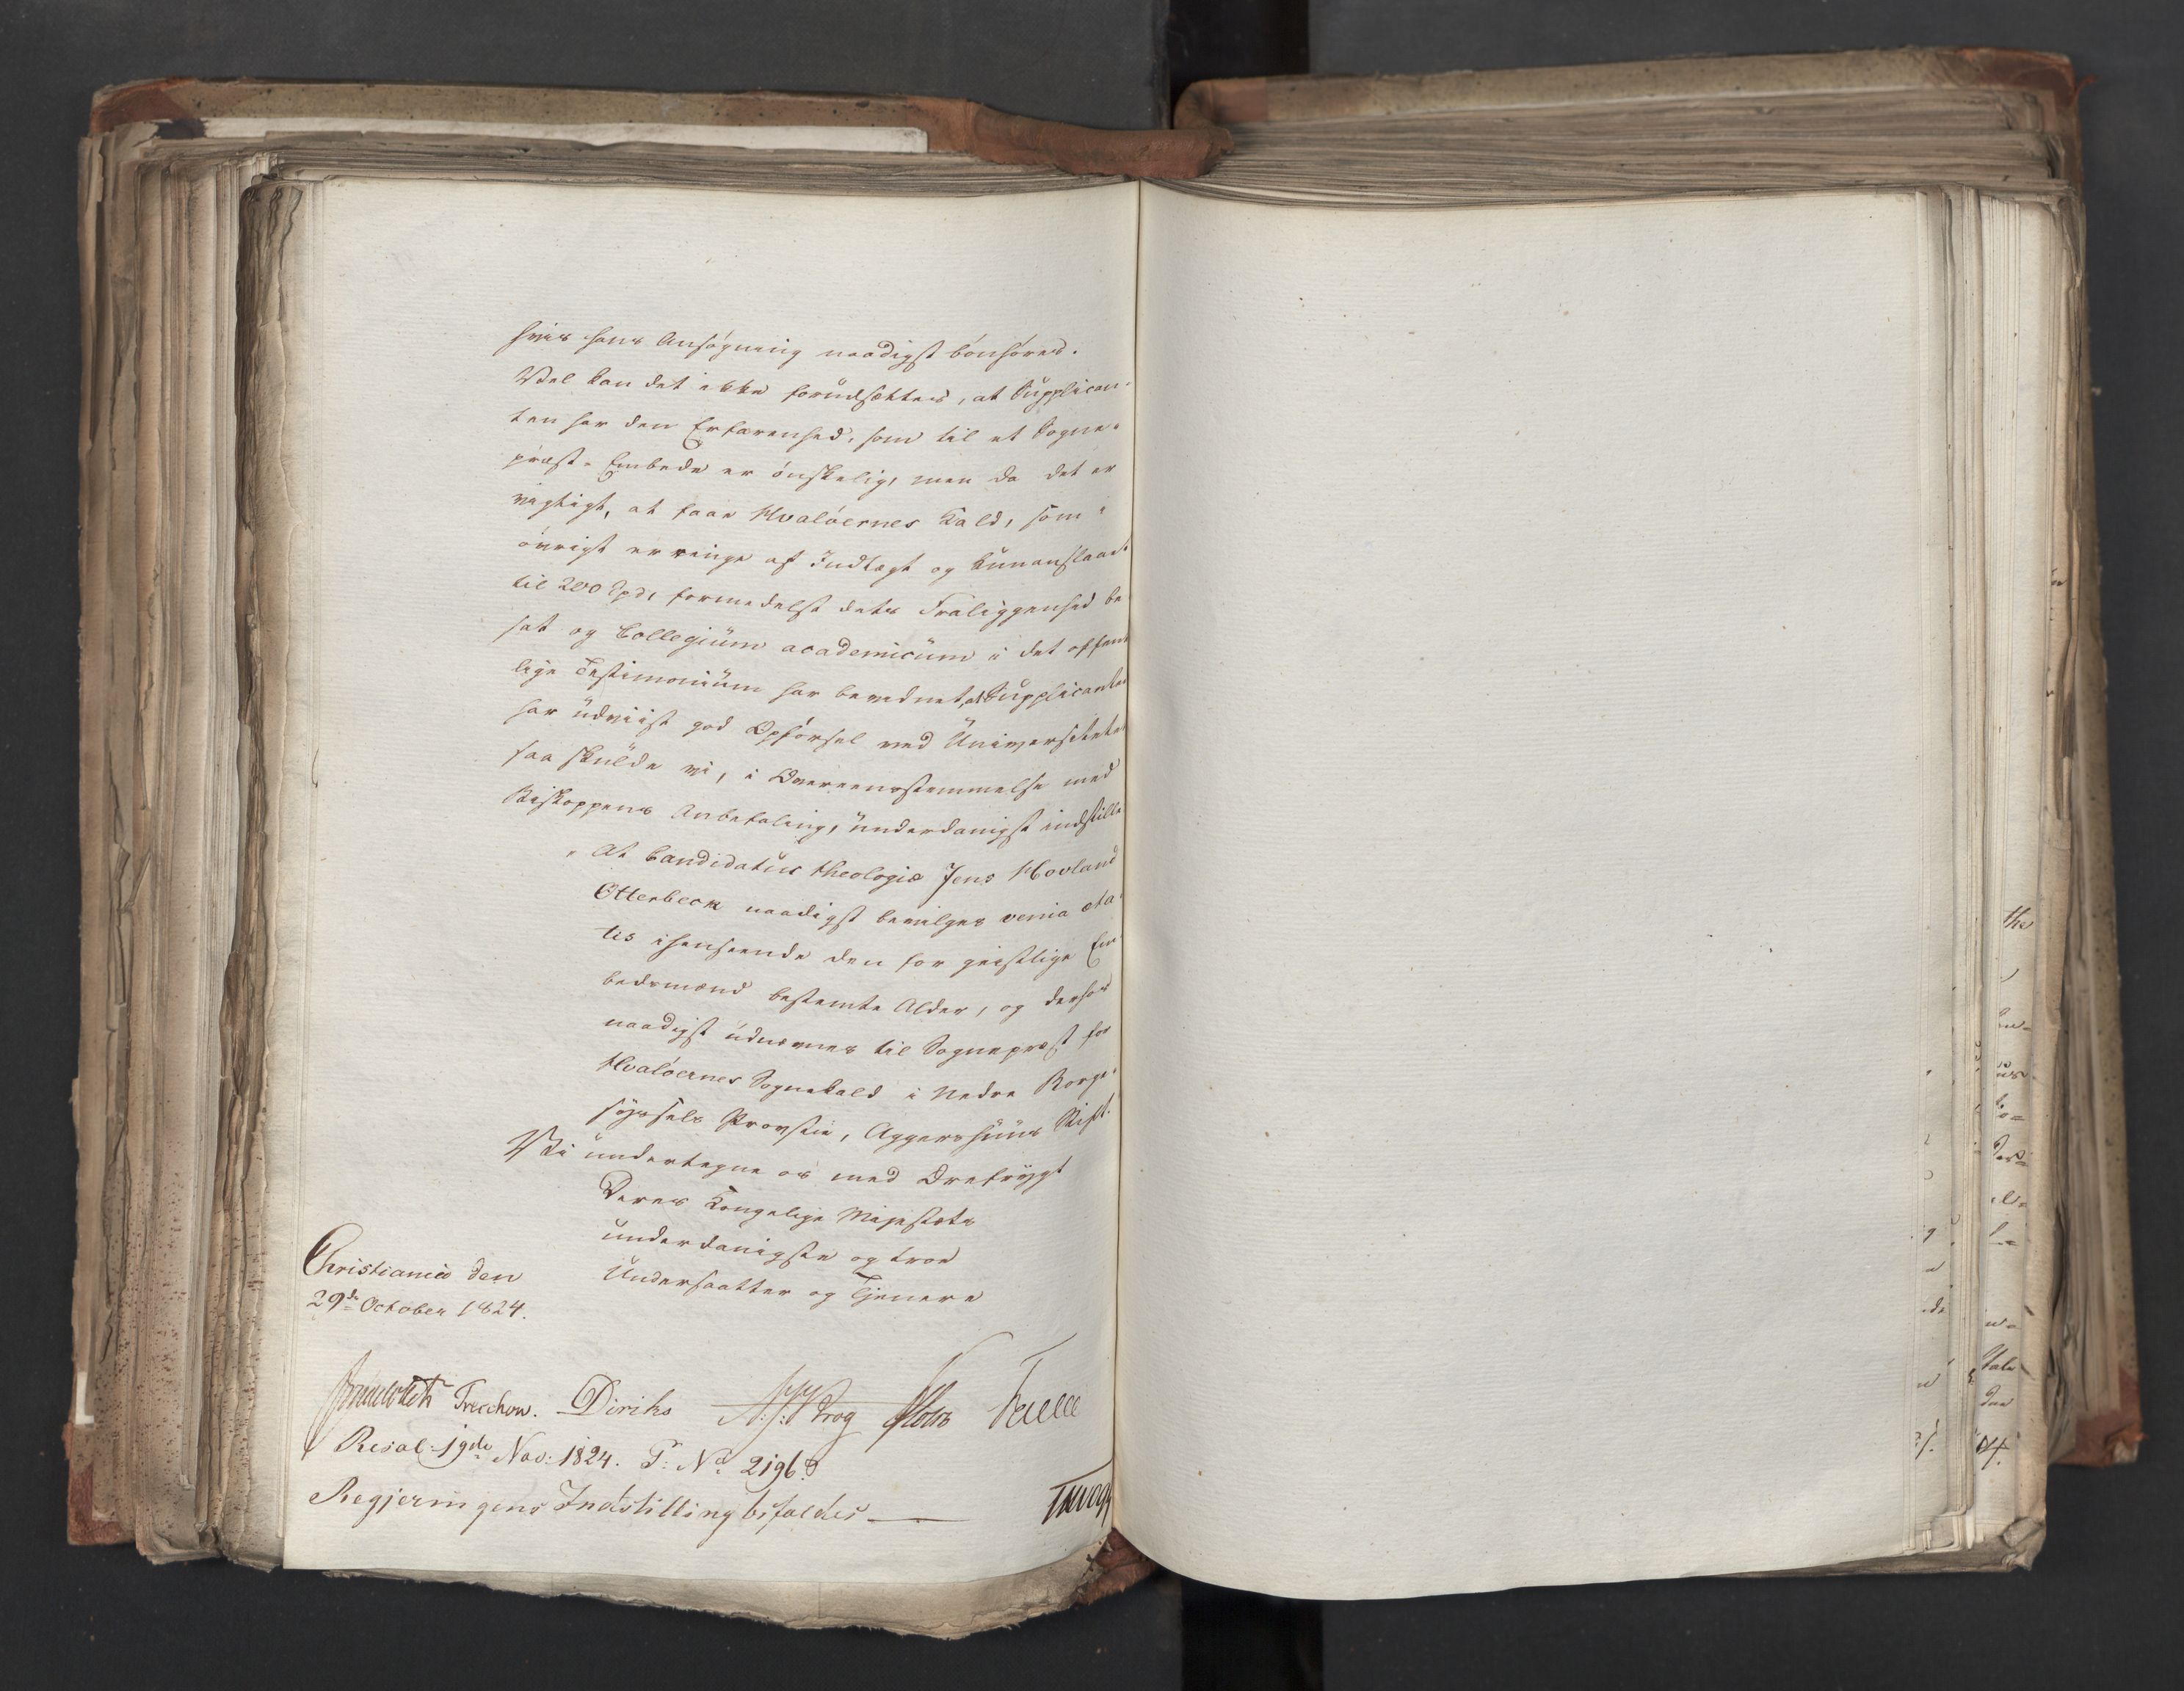 hvis hans Ansøgning naadigst bønhøres.
Vel kan det ikke forudsættes, at Supplican-
ten har den Erfarenhed, som til et Sogne-
præst-Embede er ønskelig, men da det er
vigtigt, at faae Hvaløernes Kald, som i
øvrigt er ringe af Indtægt og kun anslaaet
til 200 Spd, formedelst dets Fraliggenhed be
sat og Collegium academicum i det offent
lige Testimonium har bevidnet, at Supplicanten
har udviist god Opførsel ved Universitetet
saa skulde vi, i Overeensstemmelse med
Biskoppens Anbefaling, underdanigst indstille
"At Candidatus theologiæ Jens Hovland
Otterbeck naadigst bevilges venia æta-
tis i henseende den for geistlige Em-
bedsmænd bestemte Alder, og derhos
naadigst udnævnes til Sognepræst for
Hvaløernes Sognekald i Nedre Borge-
syssels Provstie, Aggershuus Stift.
Vi undertegne os med Ærefrygt
Deres Kongelige Majestæts
underdanigste og troe
Undersaatter og Tjenere
Christiania den
29de October 1824.
Treschow. Diriks Krog
Resol: 19de Nov: 1824. P: No 2196.
Regjeringens Indstilling bifaldes